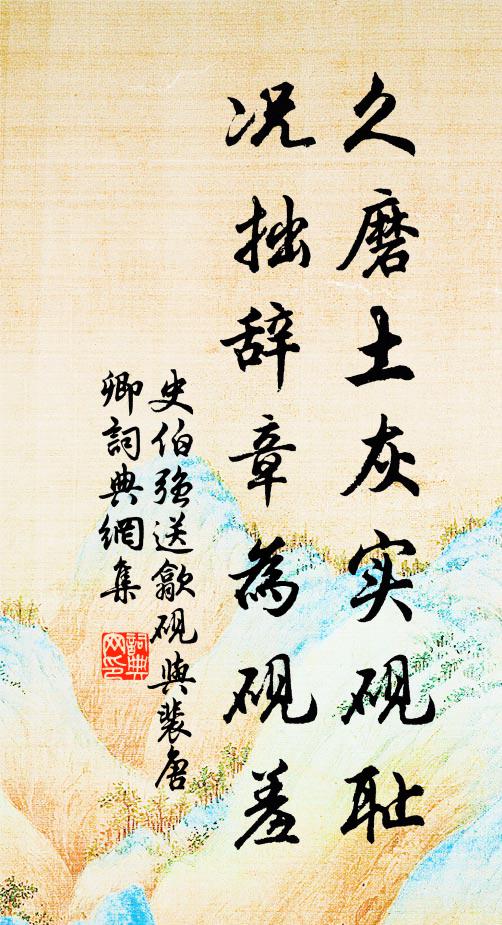 久磨土灰实砚耻
况拙辞章為砚羞
史伯强送歙砚與裴唐
卿詞典網集
詞典
网印